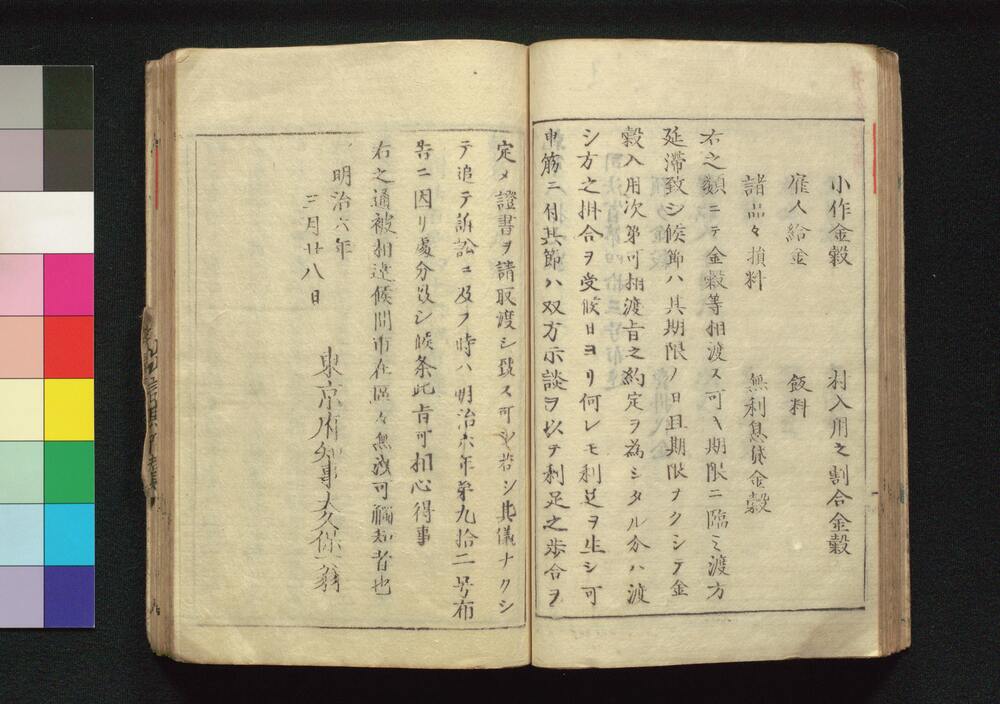 小作金穀 村入用之割合金穀
雇人給金 飯料
諸品々損料 無利息貸金穀
右之類ニテ金穀等相渡ス可キ期限ニ臨ミ渡方
延滞致シ候節ハ其期限ノ日且期限ナクシテ金
穀入用次第可相渡旨之約定ヲ為シタル分ハ渡
シ方之掛合ヲ受候日ヨリ何レモ利足ヲ生シ可
申筋ニ付其節ハ双方示談ヲ以テ利足之歩合ヲ
定メ證書ヲ請取渡シ致ス可シ若シ其儀ナクシ
テ追テ訴訟ニ及フ時ハ明治六年第九拾二号布
告ニ因リ處分致シ候条此旨可相心得事
右之通被相達候間市在區々無洩可觸知者也
明治六年
三月廿八日
東京府知事大久保一翁